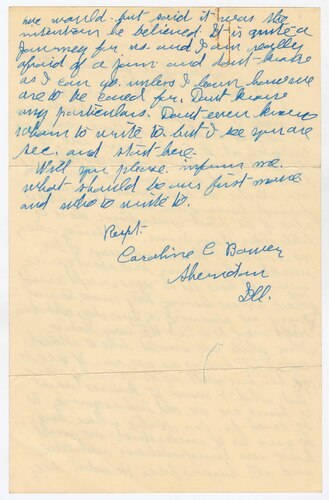 we would. but said it was the
intention he believed. It is quite a
Journey for us and I am really
afraid of a jam: and don't know
as I can go. unless I learn how we
are to be cared for. Dont know
any particulars. Dont even know
whom to write to but I see you are
sec. and start here
Will you please inform me.
what should be our first move
and who to write to.
Respt.
Caroline C Bowen
Sheridan
Ill.